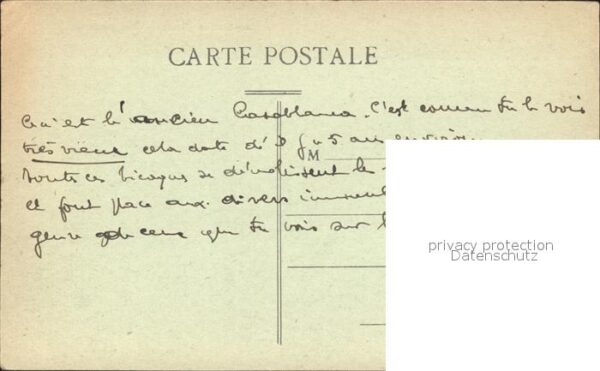 CARTE POSTALE
Ceci est l'ancien Casablanca. C'est comme tu le vois
très vieux cela date de 3 ou 5 ans environ
M
toutes ces bicoques se démolissent le
et font place aux divers immeubl
genre de ceux que tu vois sur l
privacy protection
Datenschutz